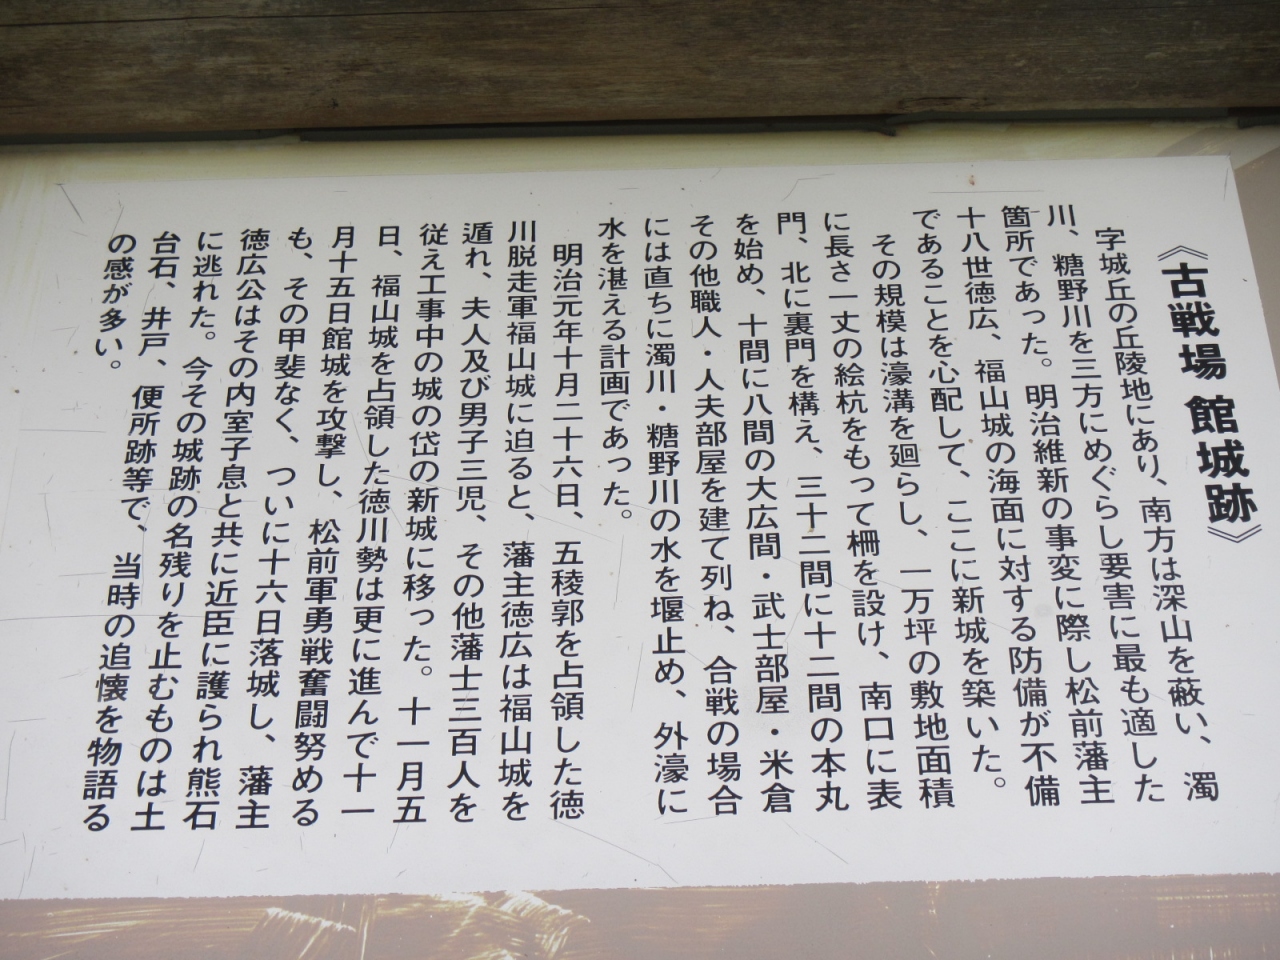 《古戦場 館城跡》
字城丘の丘陵地にあり、南方は深山を蔽い、濁
川、糖野川を三方にめぐらし要害に最も適した
箇所であった。明治維新の事変に際し松前藩主
十八世徳広、福山城の海面に対する防備が不備
であることを心配して、ここに新城を築いた。
その規模は濠溝を廻らし、一万坪の敷地面積
に長さ一丈の絵杭をもって柵を設け、南口に表
門、北に裏門を構え、三十二間に十二間の本丸
を始め、十間に八間の大広間・武士部屋・米倉
その他職人・人夫部屋を建て列ね、合戦の場合
には直ちに濁川・糖野川の水を堰止め、外濠に
水を湛える計画であった。
明治元年十月二十六日、五稜郭を占領した徳
川脱走軍福山城に迫ると、藩主徳広は福山城を
遁れ、夫人及び男子三児、その他藩士三百人を
従え工事中の城の岱の新城に移った。十一月五
日、福山城を占領した徳川勢は更に進んで十一
月十五日館城を攻撃し、松前軍勇戦奮闘努める
も、その甲斐なく、ついに十六日落城し、藩主
徳広公はその内室子息と共に近臣に護られ熊石
に逃れた。今その城跡の名残りを止むものは土
台石、井戸、便所跡等で、当時の追懐を物語る
の感が多い。